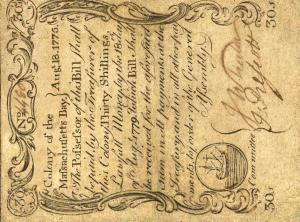 Colony of the
Massachusetts Bay, Aug. 18. 1775.
The Possessor of this Bill shall
be paid by the Treasurer of
this Colony Thirty Shillings
Lawful Money by the 18th
Day of Aug. 1779 which Bill shall
be received for the aforesaid
sum in all payments at
the Treasury and in all other pay
ments by order of the General
Assembly
Committee
30s
30s
30s
30s